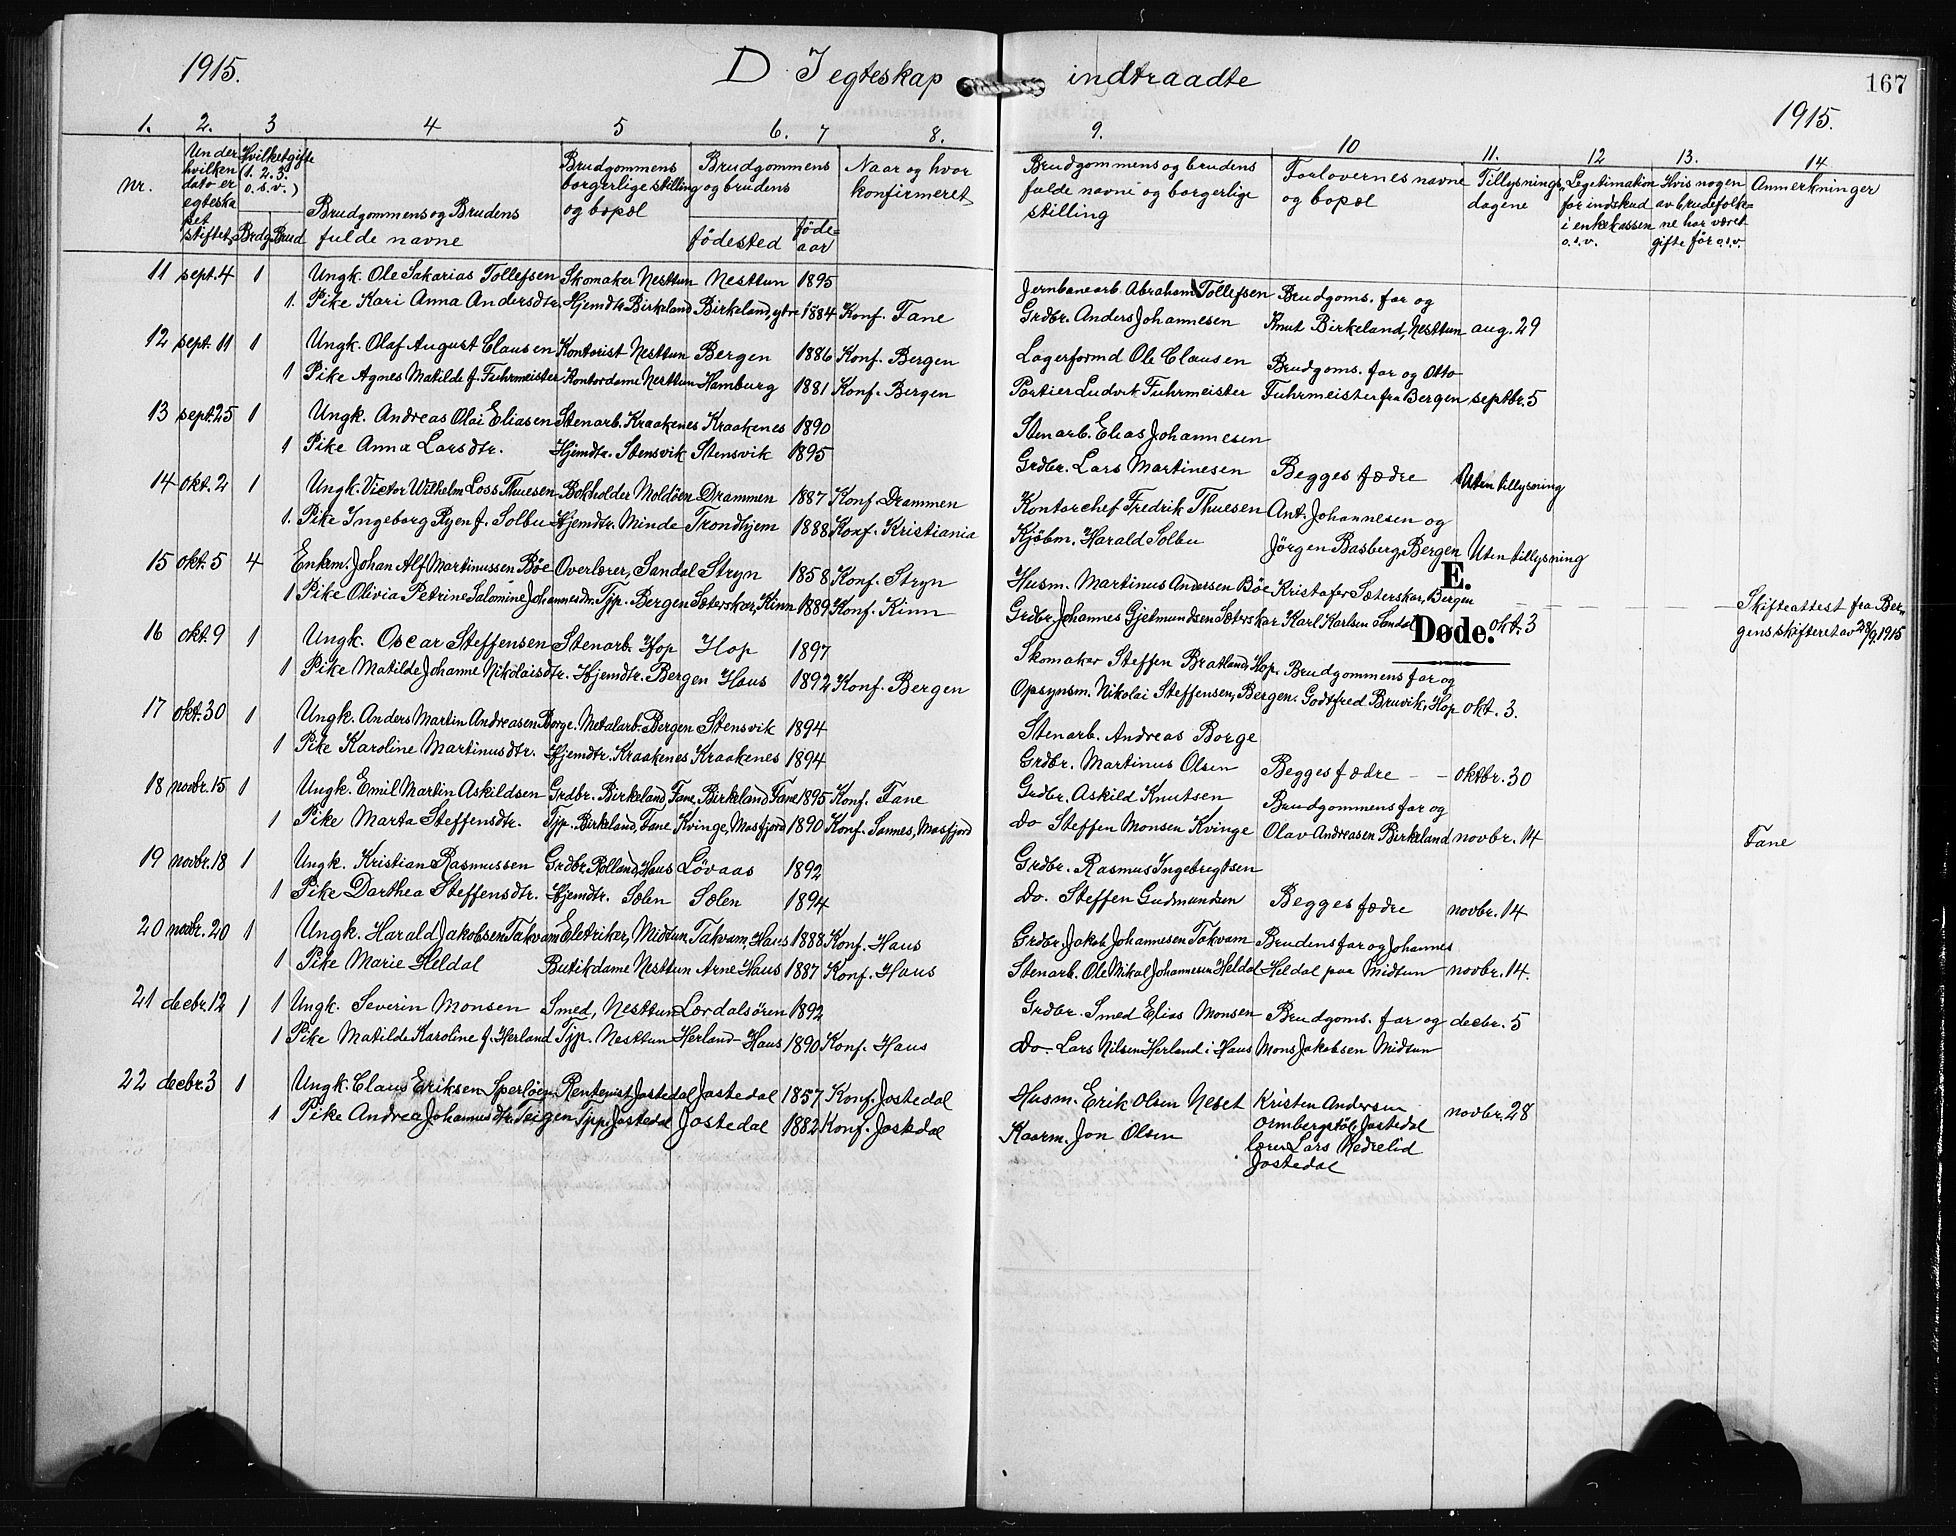 1915. D I egteskap indtraadte 167
1915.
1. 2. 3 4 5 6. 7 8. 9. 10 11. 12 13. 14
nr.
Under hvilken dato er egteska pet stiftet
Hvilket gifte (1. 2. 3. o. s. v.)
Brdg. Brud
Brudgommens og Brudens fulde navne
Brudgommens borgerlige stilling og bopæl
Brudgommens og brudens
födested
föde= aar
Naar og hvor konfirmeret
Brudgommens og brudens fædre navne og borgerlige stilling
Forlovernes navne og bopæl
Tillysnings dagene
Legitimation for indskud i enkekassen o. s. v.
Hvis nogen av brudefolke= ne har været gifte för o. s. v.
Anmerkninger
11 sept. 4 1 Ungk. Ole Sakarias Tollefsen Skomaker Nesttun Nesttun 1895 Jernbanearb. Abraham Tollefsen Brudgoms. far og
1. Pike Kari Anna Andersdtr. Hjemdtr. Birkeland Birkeland, ytre 1884 Konf. Fane Grdbr. Anders Johannesen Knut Birkeland, Nesttun aug. 29
12 sept. 11 1 Ungk. Olaf August Clausen Kontorist Nesttun Bergen 1886 Konf. Bergen Lagerformd Ole Clausen Brudgoms. far og Otto
1 Pike Agnes Matilde f. Fuhrmeister Kontordame Nesttun Hamburg 1881 Konf. Bergen Portier Ludvik Fuhrmeister Fuhrmeister fra Bergen septbr. 5
13 sept. 25 1 Ungk. Andreas Olai Eliasen Stenarb. Kraakenes Kraakenes 1890 Stenarb. Elias Johannesen
1 Pike Anna Larsdtr. Hjemdtr. Stensvik Stensvik 1895 Grdbr. Lars Martinesen Begges fædre Uten tillysning
14 okt. 2 1 Ungk. Victor Wilhelm Loss Thuesen Bokholder Moldöen Drammen 1887 Konf. Drammen Kontorchef Fredrik Thuesen Ant. Johannesen og
1. Pike Ingeborg Ryen f. Solbu Hjemdtr. Minde Trondhjem 1888 Konf. Kristiania Kjöbm. Harald Solbu Jörgen Basberg, Bergen Uten tillysning
15 okt. 5 4 Enkem. Johan Alf Martinussen Böe Overlærer, Sandal Stryn 1858 Konf. Stryn Husm. Martinus Andersen Böe Kristofer Sæterskar, Bergen
E.
1 Pike Olivia Petrine Salomine Johannesdtr. Tjp. Bergen Sæterskar, Kinn 1889 Konf. Kinn Grdbr. Johannes Gjelmundsen Sæterskar Karl Karlsen Sandal okt. 3 Skifteattest fra Ber- gens skifteret av 28/9 1915
Døde.
16 okt. 9 1 Ungk. Oscar Steffensen Stenarb. Hop Hop 1897 Skomaker Steffen Bratland, Hop. Brudgommens far og
1 Pike Matilde Johanne Nikolaisdtr. Hjemdtr. Bergen Haus 1892 Konf. Bergen Opsynsm. Nikolai Steffensen, Bergen. Godtfred Bruvik, Hop okt. 3.
17 okt. 30 1 Ungk. Anders Martin Andreasen Borge. Metalarb. Bergen Stensvik 1894 Stenarb. Andreas Borge
1 Pike Karoline Martinusdtr. Hjemdtr. Kraakenes Kraakenes 1894 Grdbr. Martinus Olsen Begges fædre – – oktbr. 30
18 novbr. 15 1 Ungk. Emil Martin Askildsen Grdbr. Birkeland, Fane, Birkeland Fane 1895 Konf. Fane Grdbr. Askild Knutsen Brudgommens far og
1 Pike Marta Steffensdtr. Tjp. Birkeland, Fane Kvinge, Masfjord 1890 Konf. Sannes, Masfjord do Steffen Monsen Kvinge Olav Andreasen Birkeland novbr. 14 Fane
19 novbr. 18 1 Ungk. Kristian Rasmussen Grdbr. Rolland, Haus Lövaas 1892 Grdbr. Rasmus Ingebregtsen
1 Pike Dorthea Steffensdtr. Hjemdtr. Sælen Sælen 1894 do. Steffen Gudmundsen Begges fædre novbr. 14
20 novbr. 20 1 Ungk. Harald Jakobsen Takvam Eletriker, Midtun Takvam, Haus 1888 Konf. Haus Grdbr. Jakob Johannesen Takvam Brudens far og Johannes
1 Pike Marie Heldal Butikdame Nesttun Arne Haus 1887 Konf. Haus Stenarb. Ole Mikal Johannesen Heldal Heldal paa Midtun novbr. 14.
21 decbr. 12 1 1 Ungk. Severin Monsen Smed, Nesttun Lærdalsören 1892 Grdbr. Smed Elias Monsen Brudgoms. far og decbr. 5
1 Pike Matilde Karoline f. Herland Tjp. Nesttun Herland Haus 1890 Konf. Haus do. Lars Nilsen Herland i Haus Mons Jakobsen Midtun
22 decbr. 3 1 Ungk. Claus Eriksen Sperlöen Rentenist Jostedal Jostedal 1857 Konf. Jostedal Husm. Erik Olsen Neset Kristen Andersen novbr. 28
1 Pike Andrea Johannesdtr. Teigen Tjp. Jostedal Jostedal 1882 Konf. Jostedal Kaarm. Jon Olsen Ormbergstöl Jostedal
lærer Lars Nedrelid
Jostedal